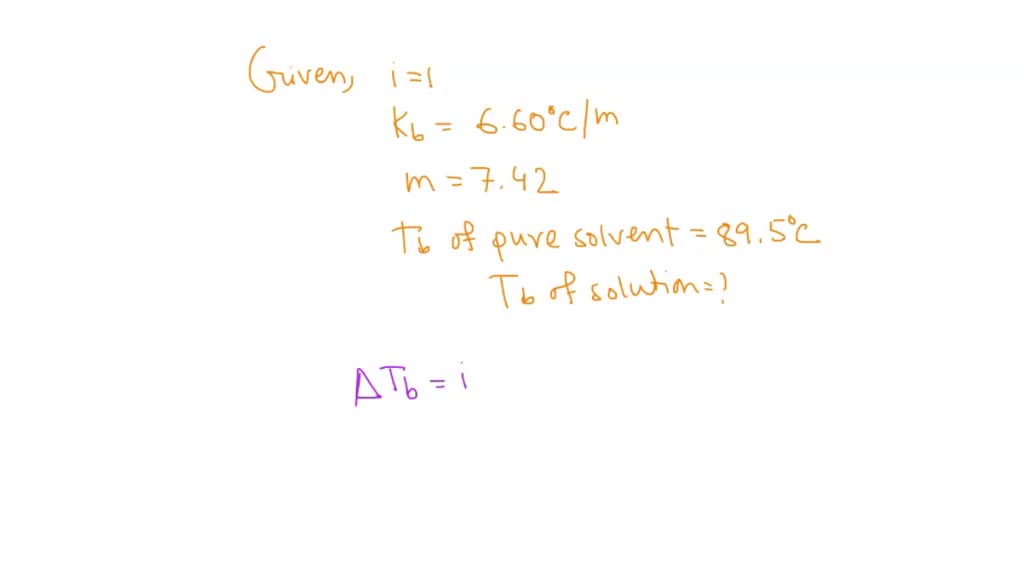 Given, i=1
Kb = 6.60°C/m
m = 7.42
Tb of pure solvent = 89.5°C
Tb of solution=?
ΔTb = i